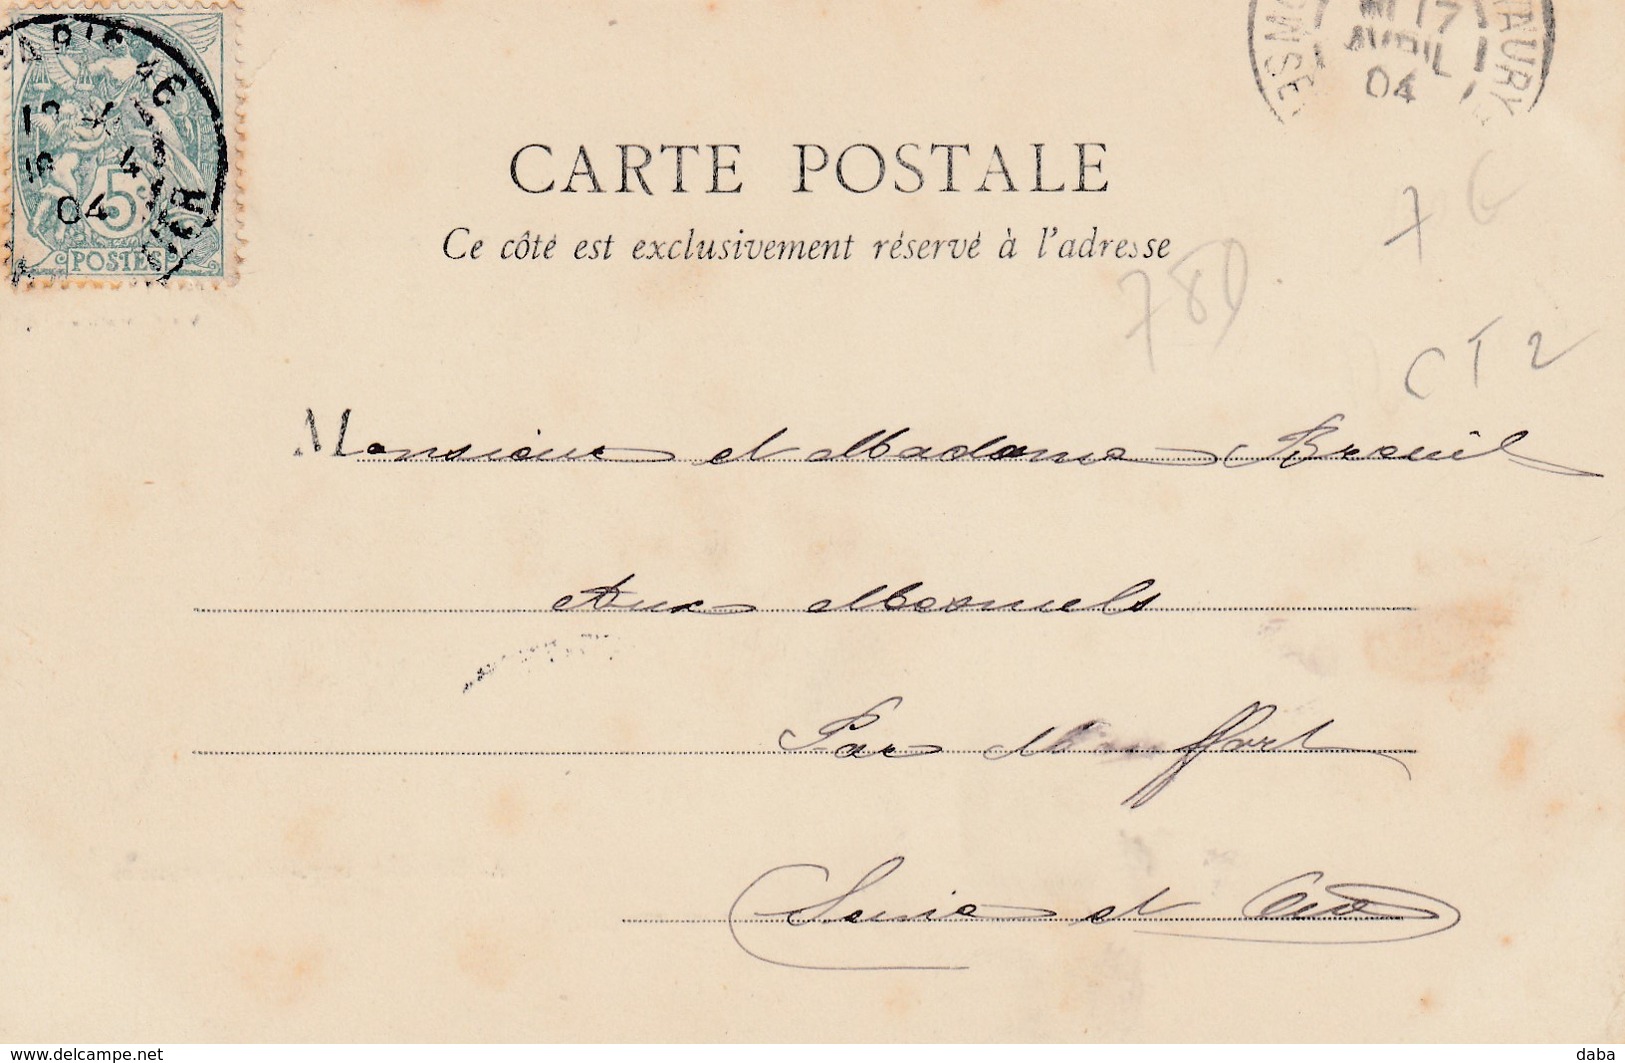 PARIS 46
04
5c
POSTES
17
AVRIL
04
CARTE POSTALE
Ce côté est exclusivement réservé à l'adresse
7 6
CT2
Monsieur et Madame Breuil
Aux Mesnuls
Par Montfort
Seine et Oise
www.delcampe.net
daba